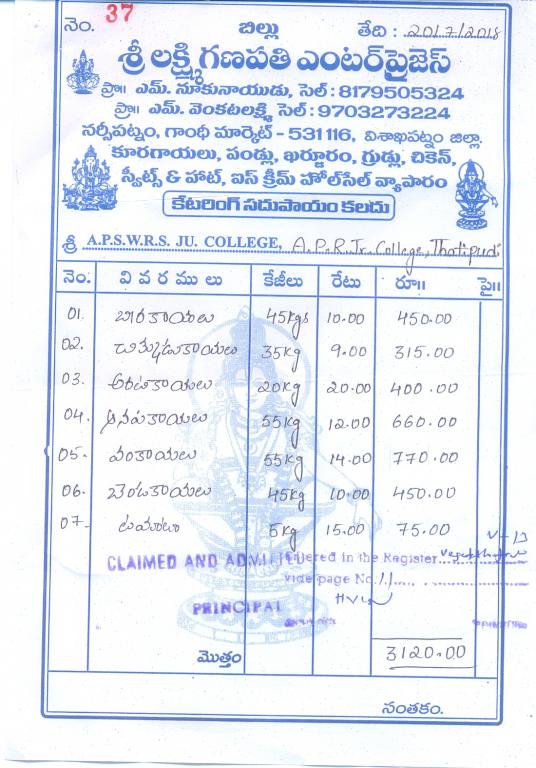 నెం. 37 బిల్లు తేది : 20/7/2018
శ్రీ లక్ష్మి గణపతి ఎంటర్‌ప్రైజెస్
ప్రొ॥ ఎమ్. నూకునాయుడు, సెల్ : 8179505324
ప్రొ॥ ఎమ్. వెంకటలక్ష్మి సెల్ : 9703273224
నర్సీపట్నం, గాంధీ మార్కెట్ - 531116, విశాఖపట్నం జిల్లా.
కూరగాయలు, పండ్లు, ఖర్జూరం, గ్రుడ్లు, చికెన్,
స్వీట్స్ & హాట్, ఐస్ క్రీమ్ హోల్‌సేల్ వ్యాపారం
కేటరింగ్ సదుపాయం కలదు
శ్రీ A.P.S.W.R.S. JU. COLLEGE, A.P.R.Jr. College, Thatipudi
నెం. వివరములు కేజీలు రేటు రూ॥ పై॥
01. బీరకాయలు 45kgs 10.00 450.00
02. చిక్కుడుకాయలు 35kg 9.00 315.00
03. అరటికాయలు 20kg 20.00 400.00
04. ఆనపకాయలు 55kg 12.00 660.00
05. వంకాయలు 55kg 14.00 770.00
06. బెండకాయలు 45kg 10.00 450.00
07 టమాటా 5kg 15.00 75.00
V-13
CLAIMED AND ADMITTED Entered in the Register
vide page No. 11
PRINCIPAL
మొత్తం 3120.00
సంతకం.